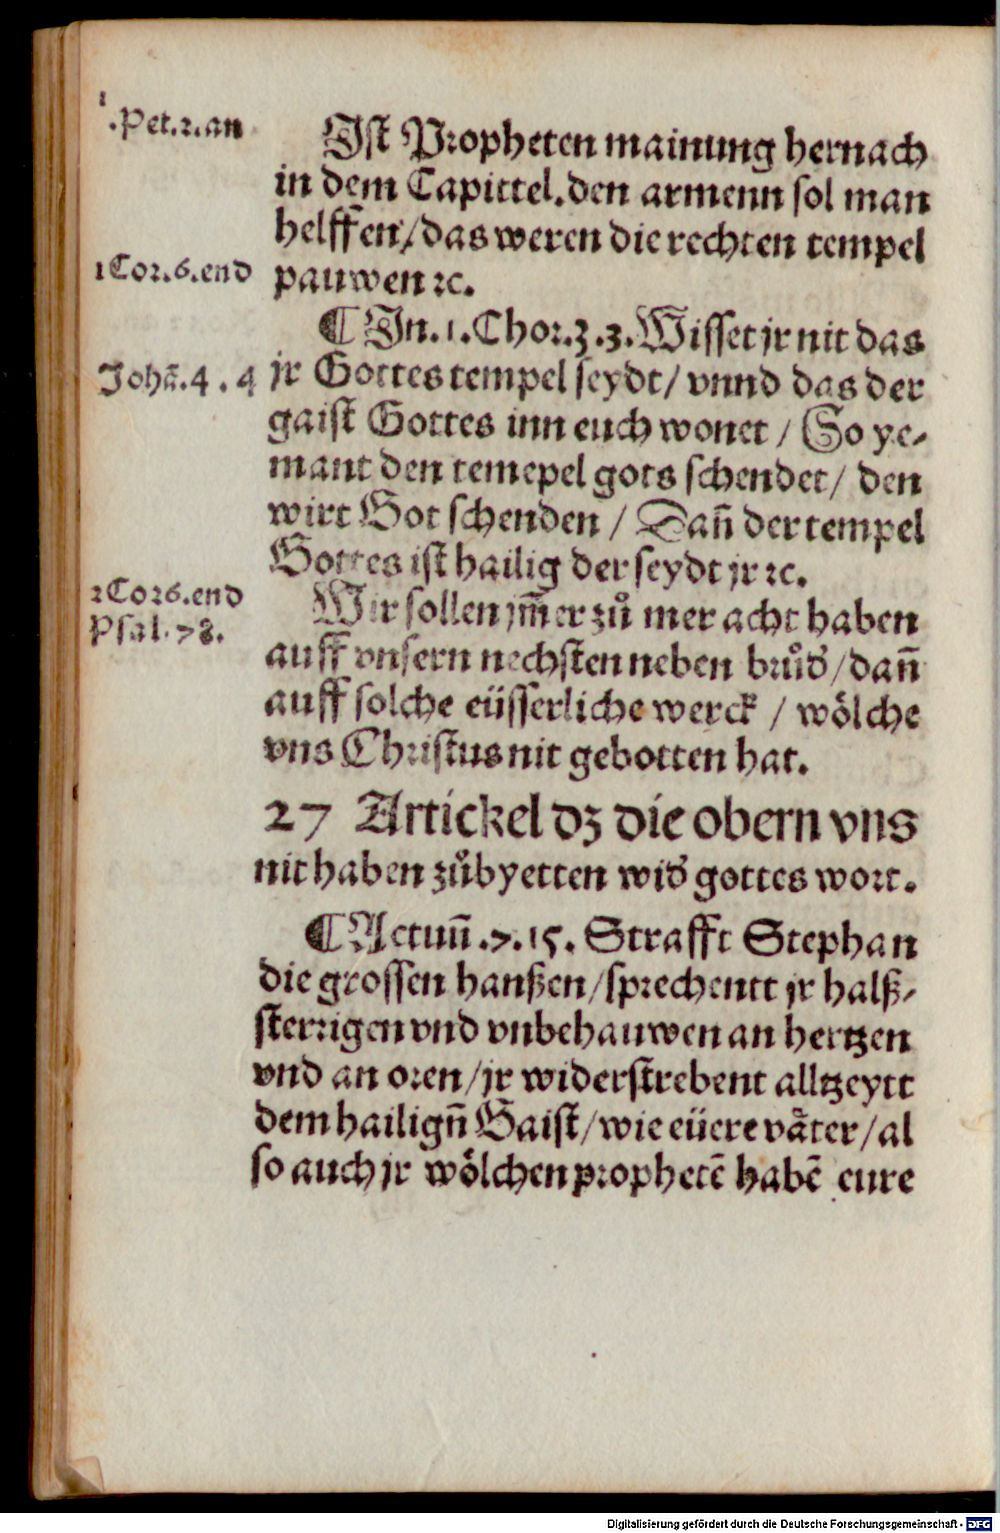 1
.Pet.2.an
Iſt Propheten mainung hernach
in dem Capittel.den armenn ſol man
helffen/das weren die rechten tempel
1Cor.6.end
pauwen ꝛc.
¶ In.1.Chor.3.3.Wiſſet jr nit das
Johā.4.4
jr Gottes tempel ſeydt/ vnnd das der
gaiſt Gottes inn euch wonet / So ye⸗
mant den temepel gots ſchendet/ den
wirt Got ſchenden / Dañ der tempel
Gottes iſt hailig der ſeydt jr ꝛc.
2Cor6.end
Wir ſollen jm̄er zů mer acht haben
Pſal.78.
auff vnſern nechſten neben brůd/dañ
auff ſolche eüſſerliche werck / wölche
vns Chriſtus nit gebotten hat.
27 Artickel dz die obern vns
nit haben zůbyetten wid gottes wort.
¶ Actuū.7.15. Strafft Stephan
die groſſen hanßen/ſprechentt jr halß⸗
ſterrigen vnd vnbehauwen an hertzen
vnd an oren/jr widerſtrebent alltzeytt
dem hailigñ Gaiſt/wie eüere väter/al
ſo auch jr wölchen prophetē habē eure
Digitalisierung gefördert durch die Deutsche Forschungsgemeinschaft - DFG